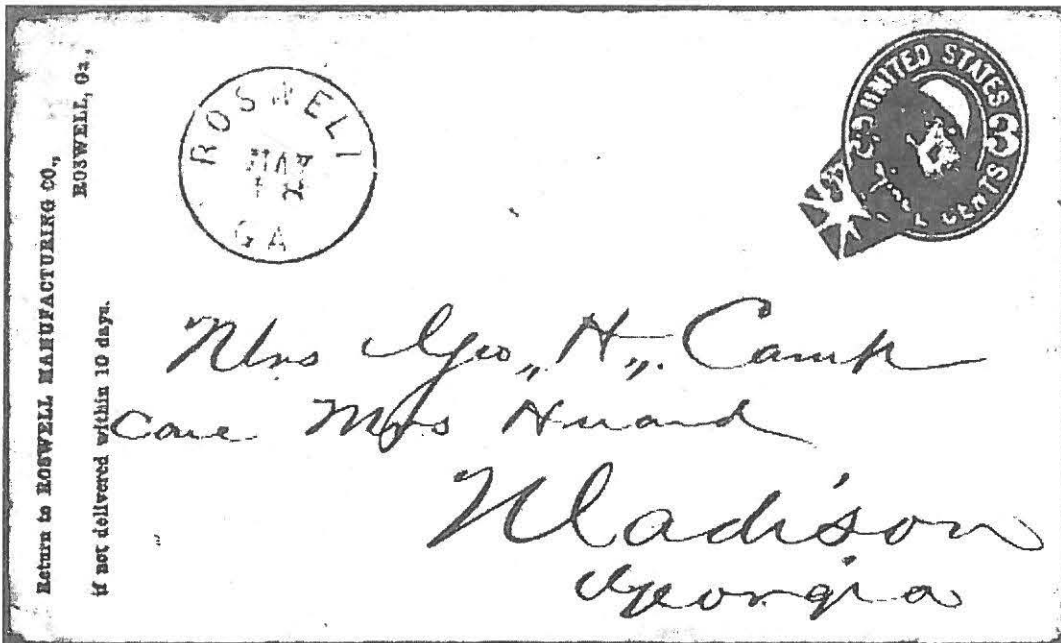 Return to ROSWELL MANUFACTURING CO.,
ROSWELL, Ga.,
if not delivered within 10 days.
ROSWELL
MAY
GA
UNITED STATES
3 3
CENTS
Mrs Geo, H,. Camp
Care Mrs
Madison
Georgia